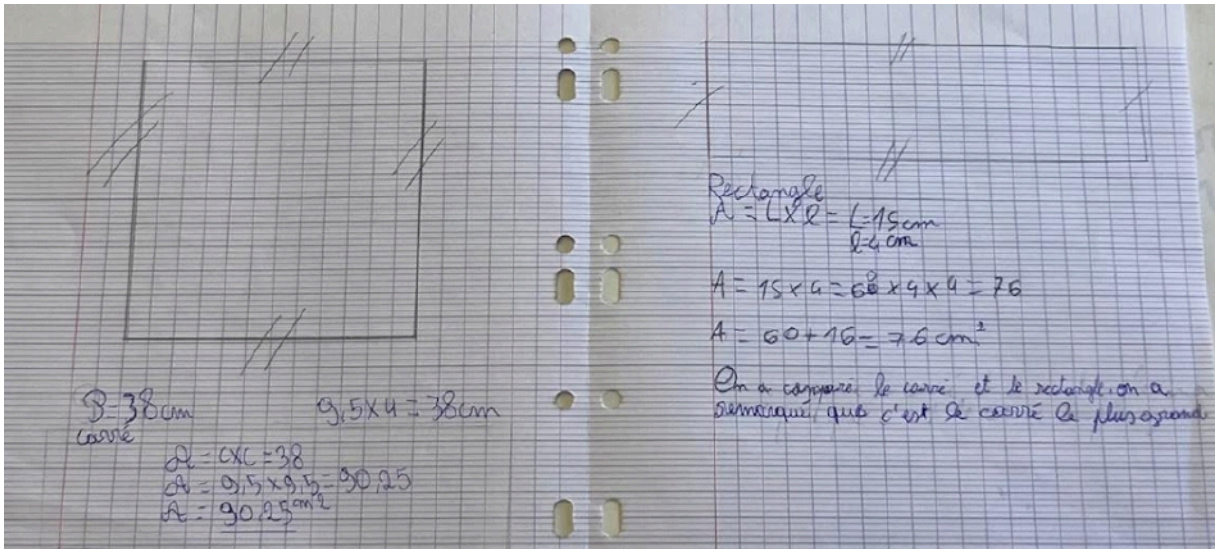 P=38cm
carré
9,5x4=38cm
A = CXC =38
A = 9,5 x 9,5=90,25
A = 90,25cm2
Rectangle
A = L X l = L=15cm
l=4 cm
A = 15 x 4 = 60 x 4 x 4 = 76
A = 60 + 16 = 76 cm²
On a comparé le carré et le rectangle, on a
remarqué que c'est le carré le plus grand